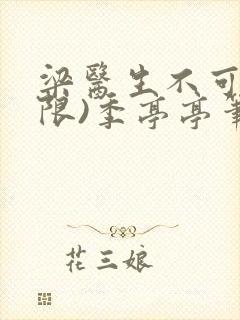 梁醫生不可
限)季亭亭筆
花三娘